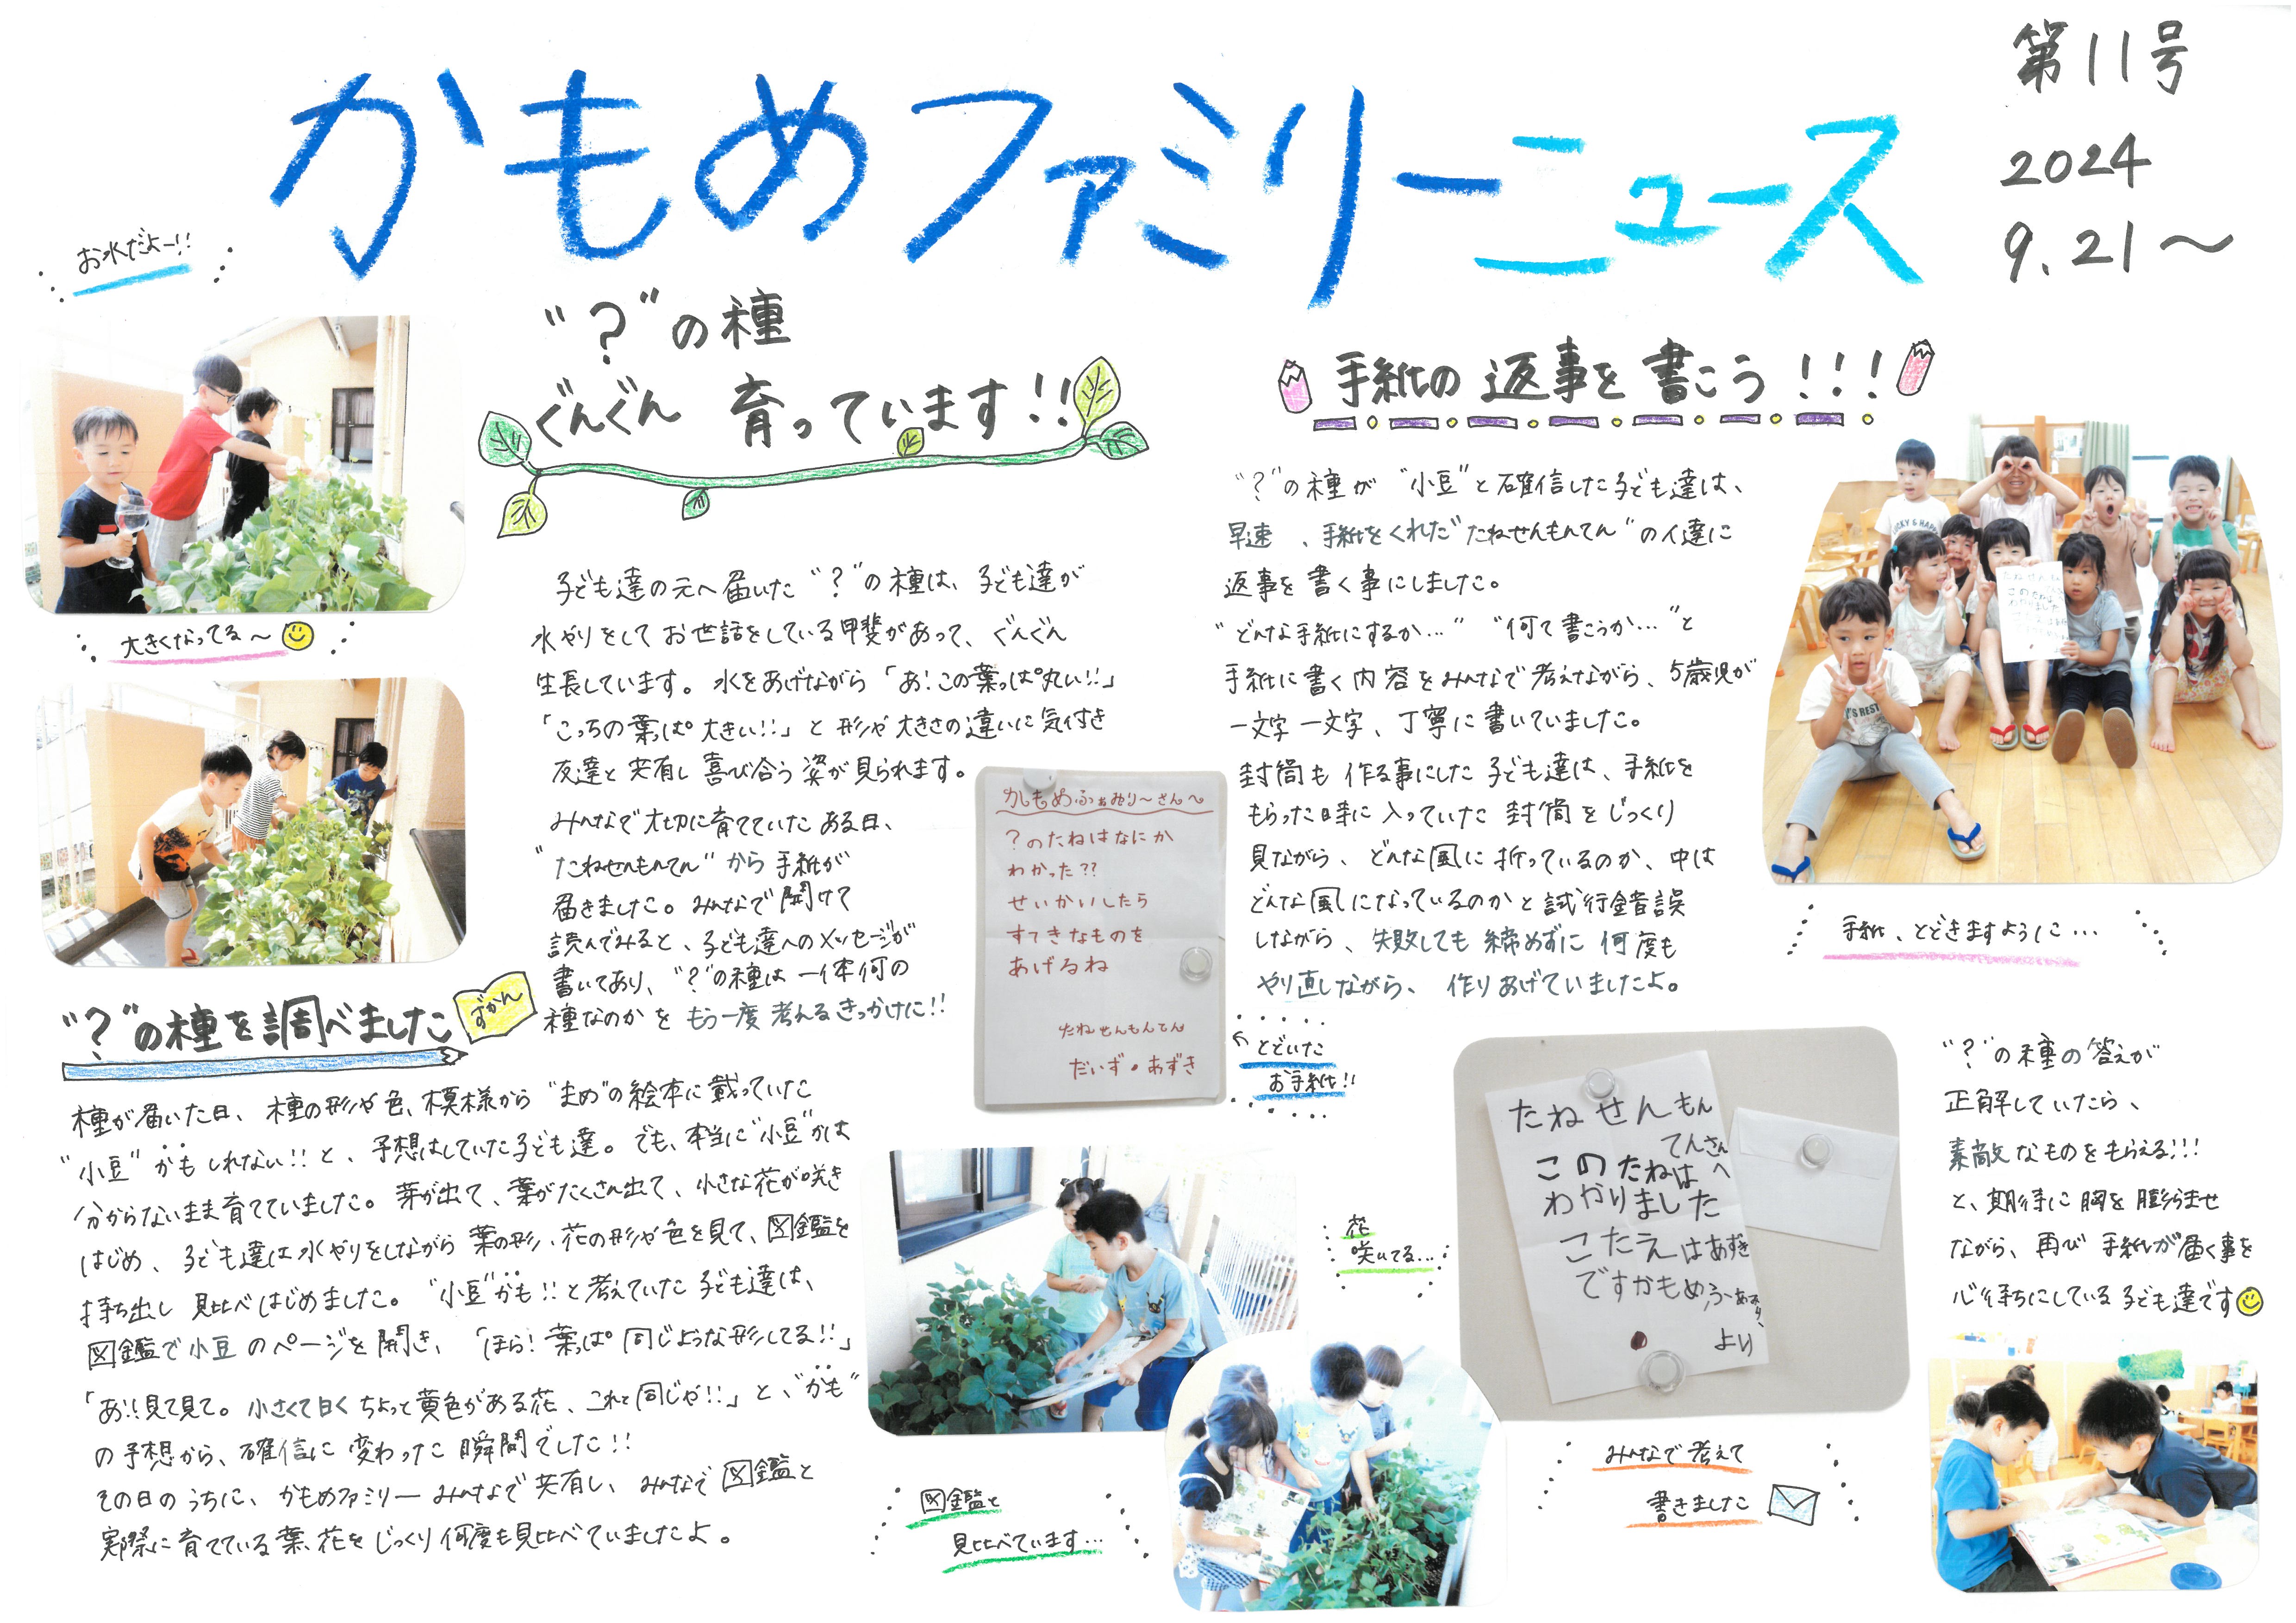 かもめファミリーニュース
第11号
2024
9.21～
お水だよー!!
大きくなってる～
"?"の種
ぐんぐん 育っています!!
子ども達の元へ届いた"?"の種は、子ども達が
水やりをしてお世話をしている甲斐があって、ぐんぐん
生長しています。水をあげながら「あ!この葉っぱ丸い!!」
「こっちの葉っぱ大きい!!」と形や大きさの違いに気付き
友達と共有し喜び合う姿が見られます。
みんなで大切に育てていたある日、
"たねせんもんてん"から手紙が
届きました。みんなで開けて
読んでみると、子ども達へのメッセージが
書いてあり、"?"の種は一体何の
種なのかをもう一度考えるきっかけに!!
かもめふぁみりーさんへ
?のたねはなにか
わかった??
せいかいしたら
すてきなものを
あげるね
たねせんもんてん
だいず・あずき
とどいた
お手紙!!
"?"の種を調べました
ずかん
種が届いた日、種の形や色、模様から"まめ"の絵本に載っていた
"小豆"かもしれない!!と、予想はしていた子ども達。でも、本当に"小豆"かは
分からないまま育てていました。芽が出て、葉がたくさん出て、小さな花が咲き
はじめ、子ども達は水やりをしながら葉の形、花の形や色を見て、図鑑を
持ち出し見比べはじめました。"小豆"かも!!と考えていた子ども達は、
図鑑で小豆のページを開き、「ほら!葉っぱ同じような形してる!!」
「あ!!見て見て。小さくて白くちょっと黄色がある花、これと同じや!!」と、"かも"
の予想から、確信に変わった瞬間でした!!
その日のうちに、かもめファミリーみんなで共有し、みんなで図鑑と
実際に育てている葉、花をじっくり何度も見比べていましたよ。
図鑑と
見比べています…
花
咲いてる…
手紙の返事を書こう!!!
"?"の種が"小豆"と確信した子ども達は、
早速、手紙をくれた"たねせんもんてん"の人達に
返事を書く事にしました。
"どんな手紙にするか…" "何て書こうか…"と
手紙に書く内容をみんなで考えながら、5歳児が
一文字一文字、丁寧に書いていました。
封筒も作る事にした子ども達は、手紙を
もらった時に入っていた封筒をじっくり
見ながら、どんな風に折っているのか、中は
どんな風になっているのかと試行錯誤
しながら、失敗しても締めずに何度も
やり直しながら、作りあげていましたよ。
手紙、とどきますように…
たねせんもん
てんさんへ
このたねは
わかりました
こたえはあずき
ですかもめふぁみりー
より
みんなで考えて
書きました
"?"の種の答えが
正解していたら、
素敵なものをもらえる!!!
と、期待に胸を膨らませ
ながら、再び手紙が届く事を
心待ちにしている子ども達です